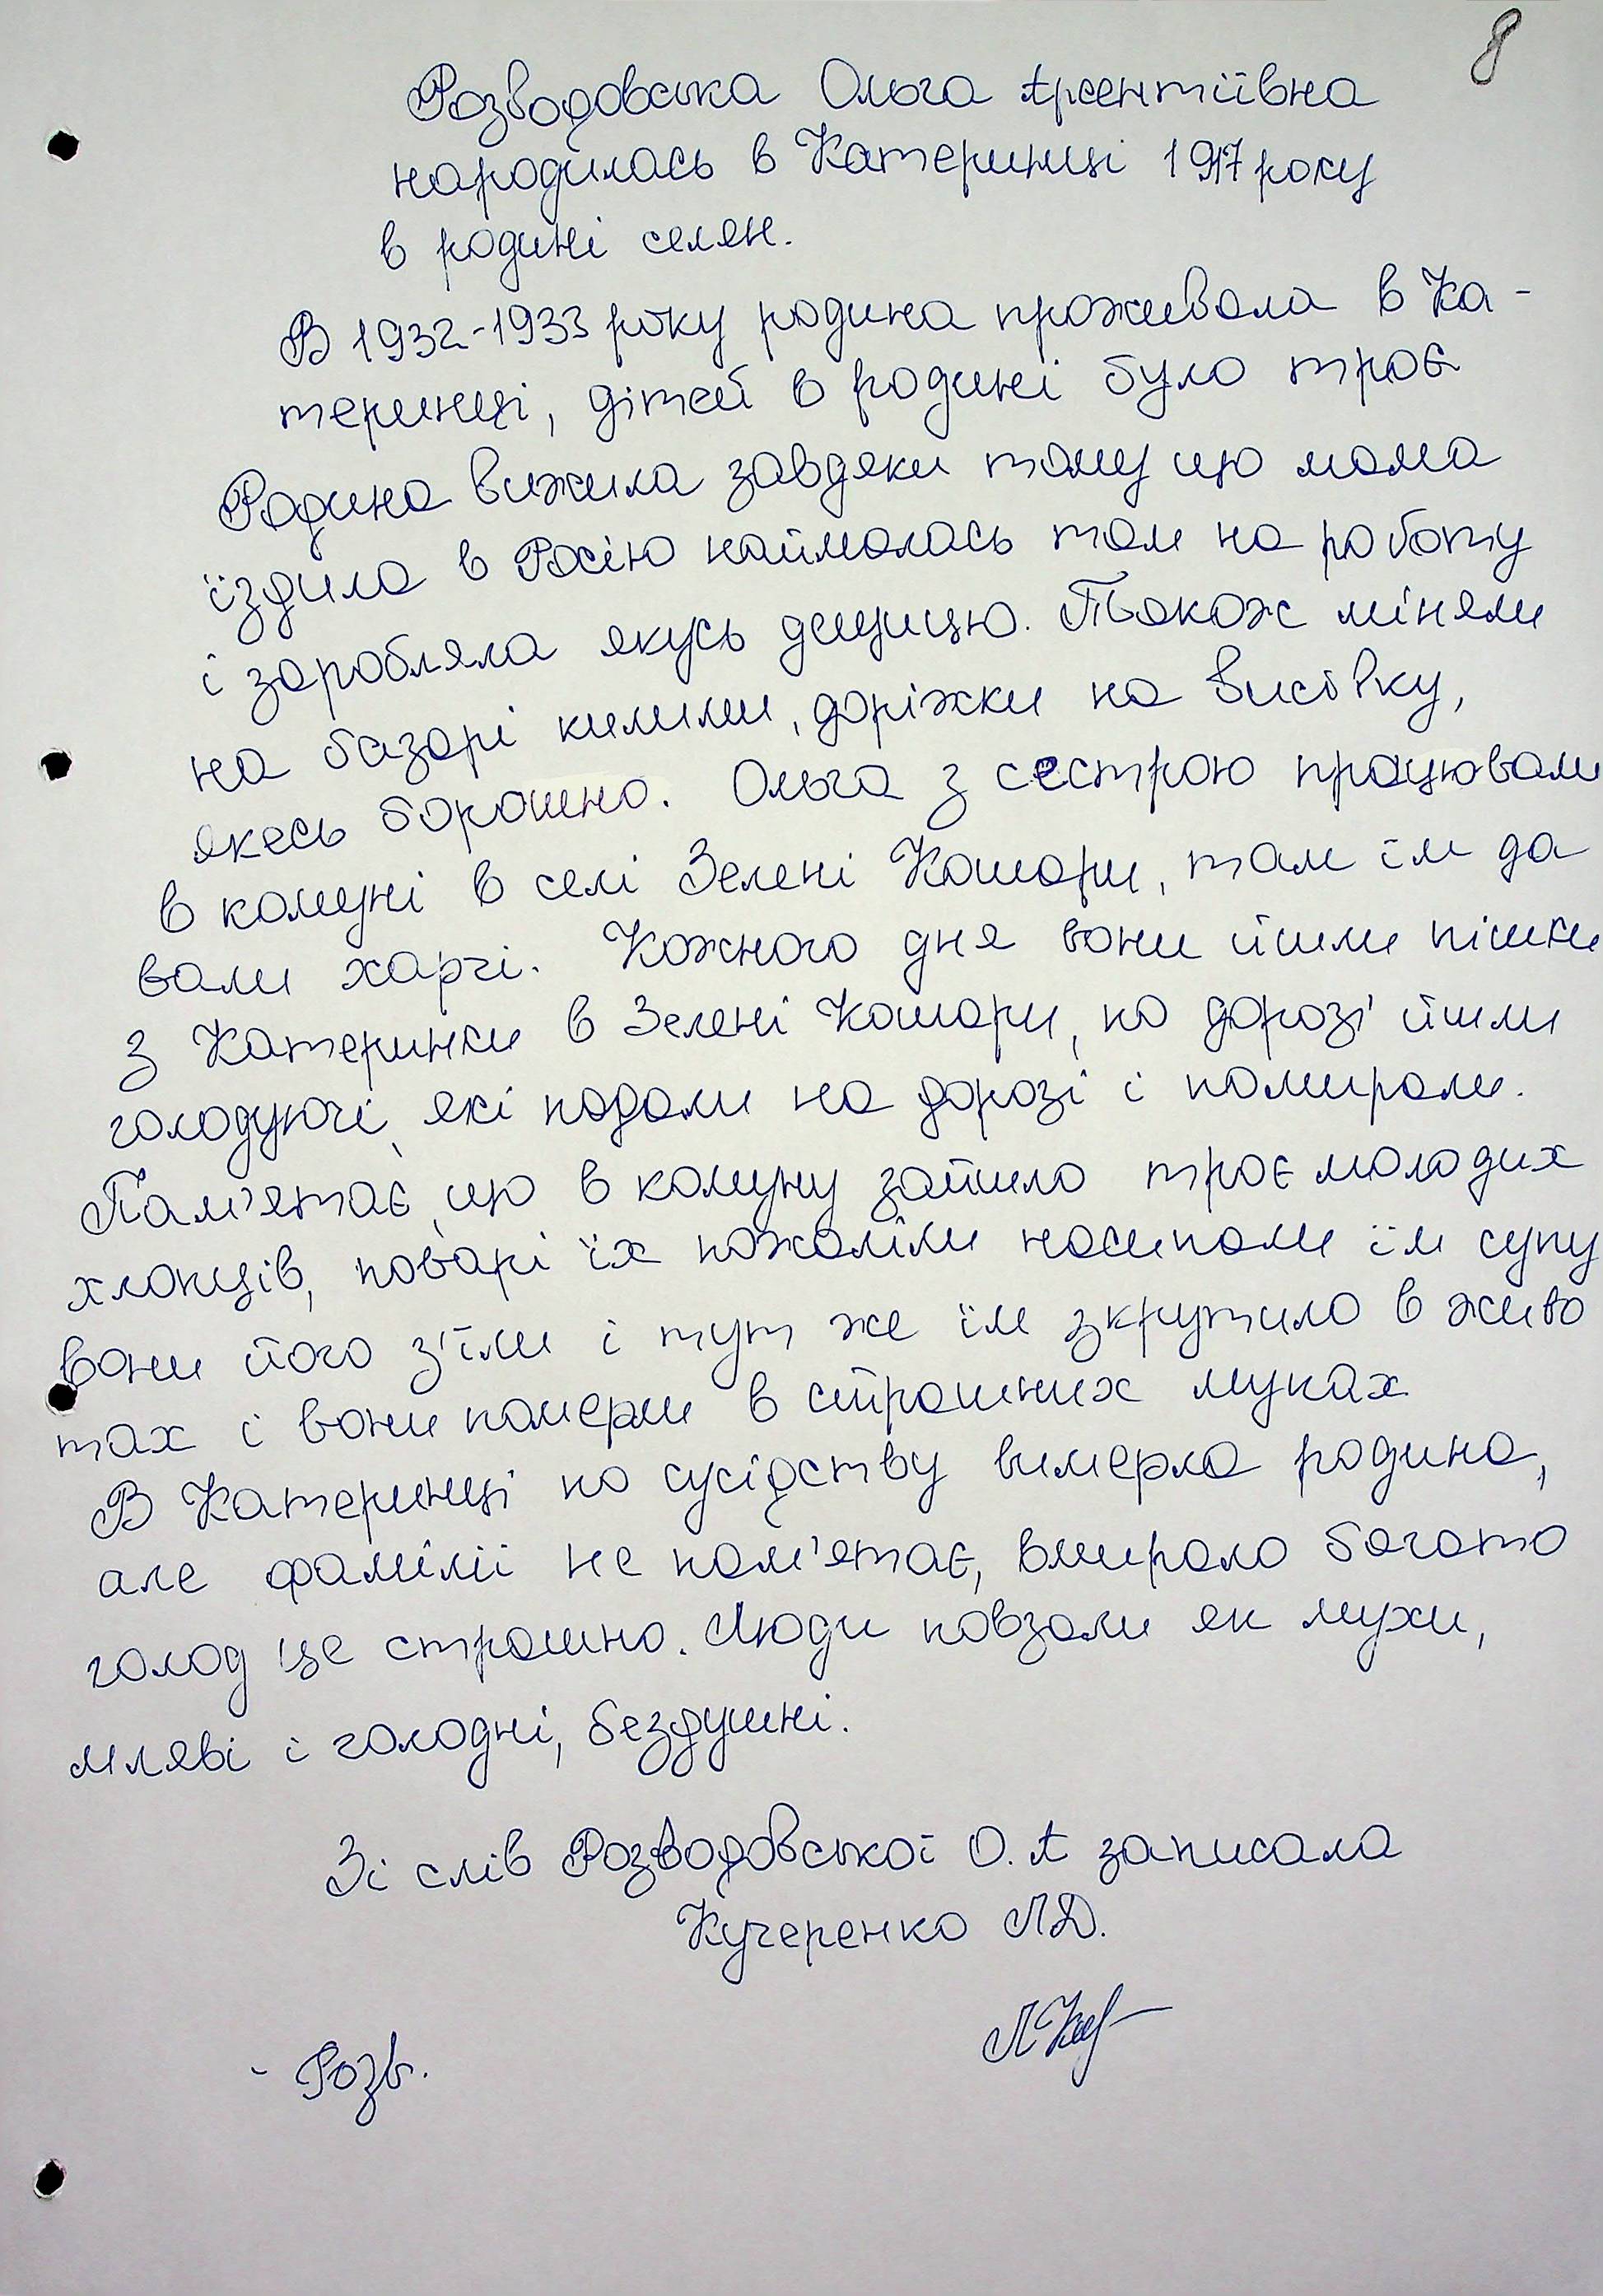 8
Розводовська Ольга Арсентіївна
народилась в Катеринці 1917 року
в родині селян.
В 1932-1933 року родина проживала в Ка-
теринці, дітей в родині було троє
Родина вижила завдяки тому що мама
їздила в Росію наймалась там на роботу
і заробляла якусь дещицю. Також міняли
на базарі килими, доріжки на висівку,
якесь борошно. Ольга з сестрою працювали
в комуні в селі Зелені Кошари, там їм да
вали харчі. Кожного дня вони йшли пішки
з Катеринки в Зелені Кошари, по дорозі йшли
голодуючі, які падали на дорозі і помирали.
Пам'ятає, що в комуну зайшло троє молодих
хлопців, поварі їх пожаліли насипали їм супу
вони його з'їли і тут же їм зкрутило в живо
тах і вони померли в страшних муках
В Катеринці по сусідству вимерла родина,
але фамілії не пам'ятає, вмирало багато
голод це страшно. Люди повзали як мухи,
мляві і голодні, бездушні.
Зі слів Розводовської О.А записала
Кучеренко Л.Д.
- Розв.